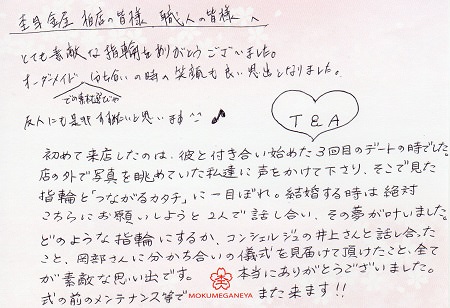 杢目金屋 柏店の皆様 職人の皆様 へ
とても素敵な指輪をありがとうございました。
オーダーメイド、分ち合いの時の笑顔も良い思出となりました。
での素材選びや
友人にも是非すすめたいと思います^^ ♪
T & A
初めて来店したのは、彼と付き合い始めた3回目のデートの時でした。
店の外で写真を眺めていた私達に声をかけて下さり、そこで見た
指輪と「つながるカタチ」に一目ぼれ。結婚する時は絶対
こちらにお願いしようと2人で話し合い、その夢が叶いました。
どのような指輪にするか、コンシェルジュの井上さんと話し合った
こと、岡部さんに分かち合いの儀式を見届けて頂けたこと、全て
が素敵な思い出です。 本当にありがとうございました。
式の前のメンテナンス等で また来ます!!
MOKUMEGANEYA